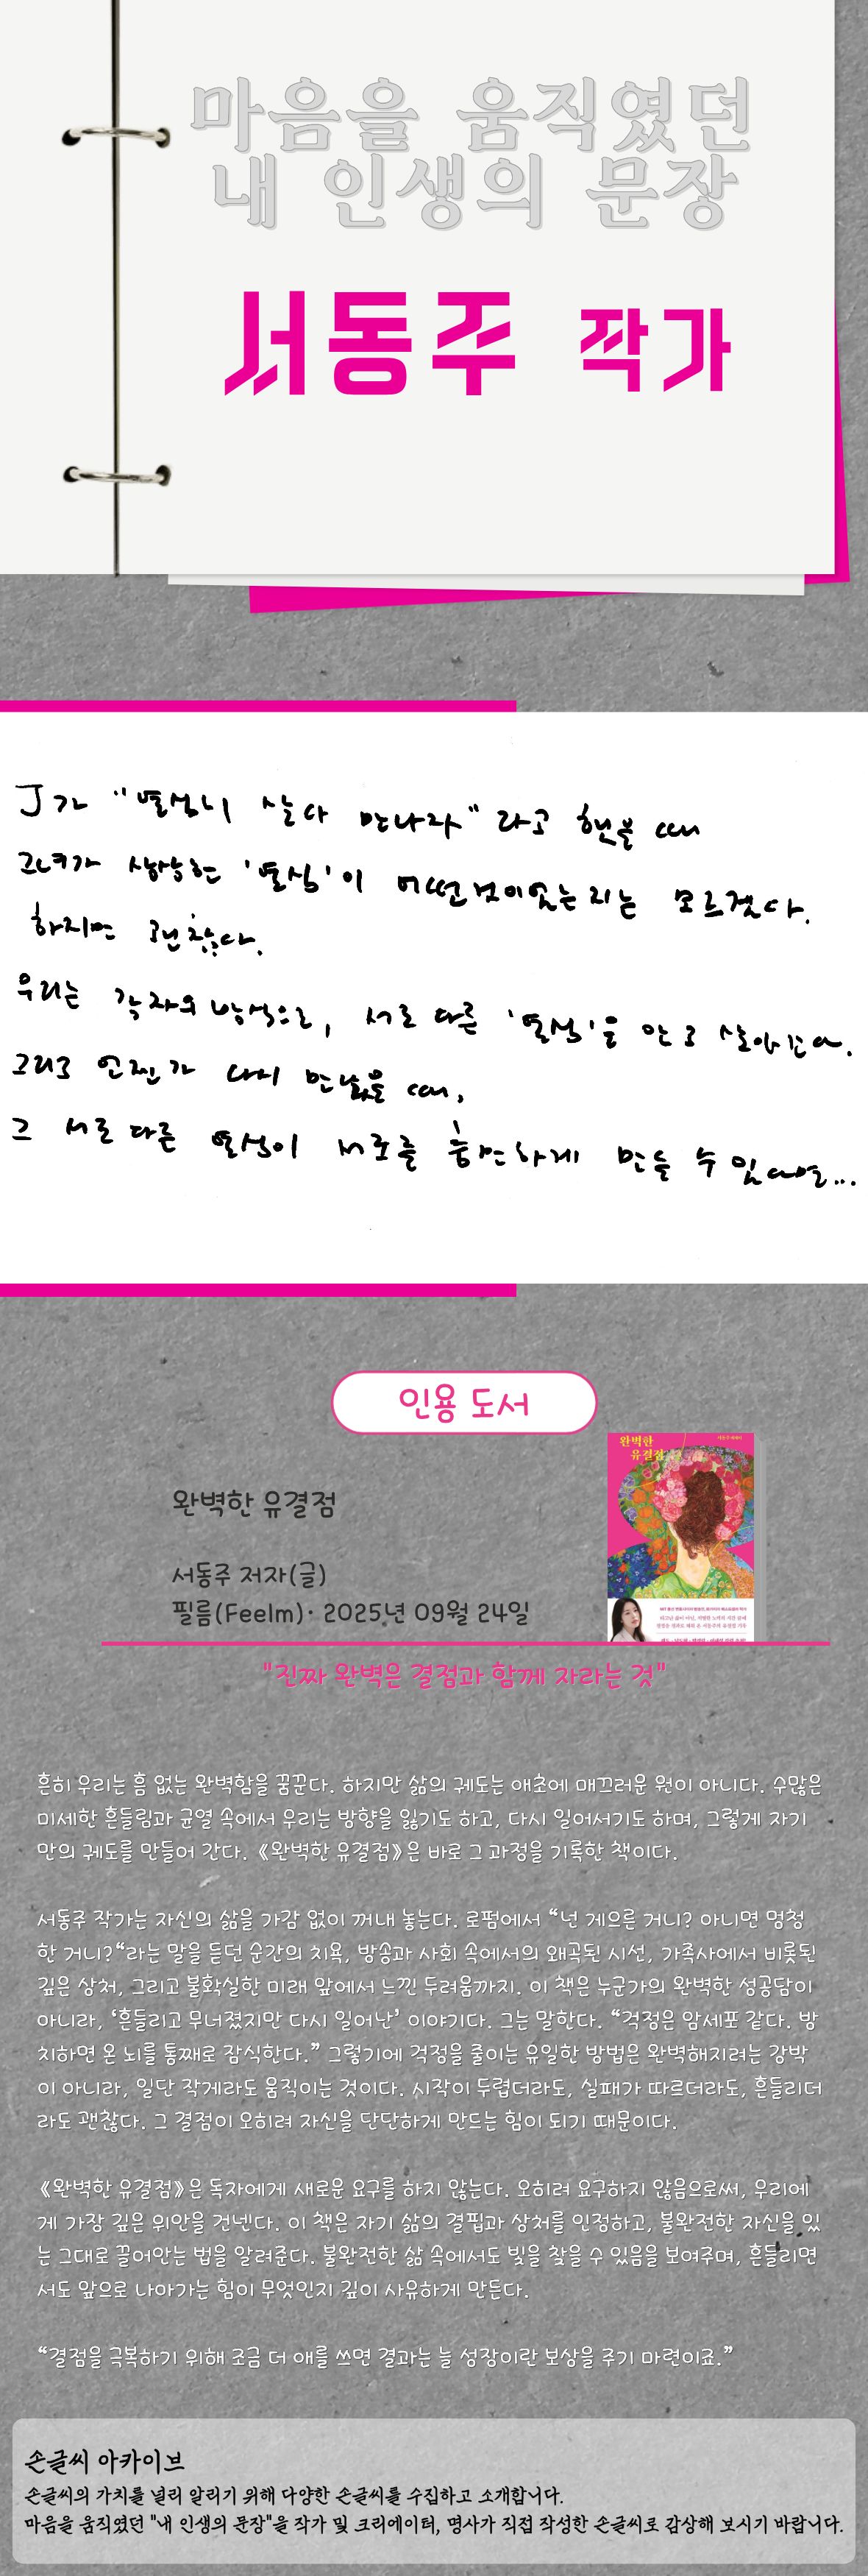 마음을 움직였던
내 인생의 문장
서동주 작가
J가 "열심히 살다 만나자"라고 했을 때
그녀가 상상한 '열심'이 어떤 것이었는지는 모르겠다.
하지만 괜찮다.
우리는 각자의 방식으로, 서로 다른 '열심'을 안고 살아간다.
그리고 언젠가 다시 만났을 때,
그 서로 다른 열심이 서로를 충만하게 만들 수 있다면...
인용 도서
완벽한
유결점
서동주 에세이
완벽한 유결점
서동주 저자(글)
필름(Feelm)· 2025년 09월 24일
"진짜 완벽은 결점과 함께 자라는 것"
흔히 우리는 흠 없는 완벽함을 꿈꾼다. 하지만 삶의 궤도는 애초에 매끄러운 원이 아니다. 수많은
미세한 흔들림과 균열 속에서 우리는 방향을 잃기도 하고, 다시 일어서기도 하며, 그렇게 자기
만의 궤도를 만들어 간다. 《완벽한 유결점》은 바로 그 과정을 기록한 책이다.
서동주 작가는 자신의 삶을 가감 없이 꺼내 놓는다. 로펌에서 “넌 게으른 거니? 아니면 멍청
한 거니?“라는 말을 듣던 순간의 치욕, 방송과 사회 속에서의 왜곡된 시선, 가족사에서 비롯된
깊은 상처, 그리고 불확실한 미래 앞에서 느낀 두려움까지. 이 책은 누군가의 완벽한 성공담이
아니라, ‘흔들리고 무너졌지만 다시 일어난’ 이야기다. 그는 말한다. “걱정은 암세포 같다. 방
치하면 온 뇌를 통째로 잠식한다.” 그렇기에 걱정을 줄이는 유일한 방법은 완벽해지려는 강박
이 아니라, 일단 작게라도 움직이는 것이다. 시작이 두렵더라도, 실패가 따르더라도, 흔들리더
라도 괜찮다. 그 결점이 오히려 자신을 단단하게 만드는 힘이 되기 때문이다.
《완벽한 유결점》은 독자에게 새로운 요구를 하지 않는다. 오히려 요구하지 않음으로써, 우리에
게 가장 깊은 위안을 건넨다. 이 책은 자기 삶의 결핍과 상처를 인정하고, 불완전한 자신을 있
는 그대로 끌어안는 법을 알려준다. 불완전한 삶 속에서도 빛을 찾을 수 있음을 보여주며, 흔들리면
서도 앞으로 나아가는 힘이 무엇인지 깊이 사유하게 만든다.
“결점을 극복하기 위해 조금 더 애를 쓰면 결과는 늘 성장이란 보상을 주기 마련이죠.”
손글씨 아카이브
손글씨의 가치를 널리 알리기 위해 다양한 손글씨를 수집하고 소개합니다.
마음을 움직였던 "내 인생의 문장"을 작가 및 크리에이터, 명사가 직접 작성한 손글씨로 감상해 보시기 바랍니다.